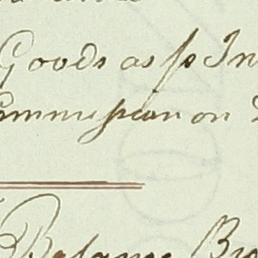 Goods as p In
Commission on
Balance Bro